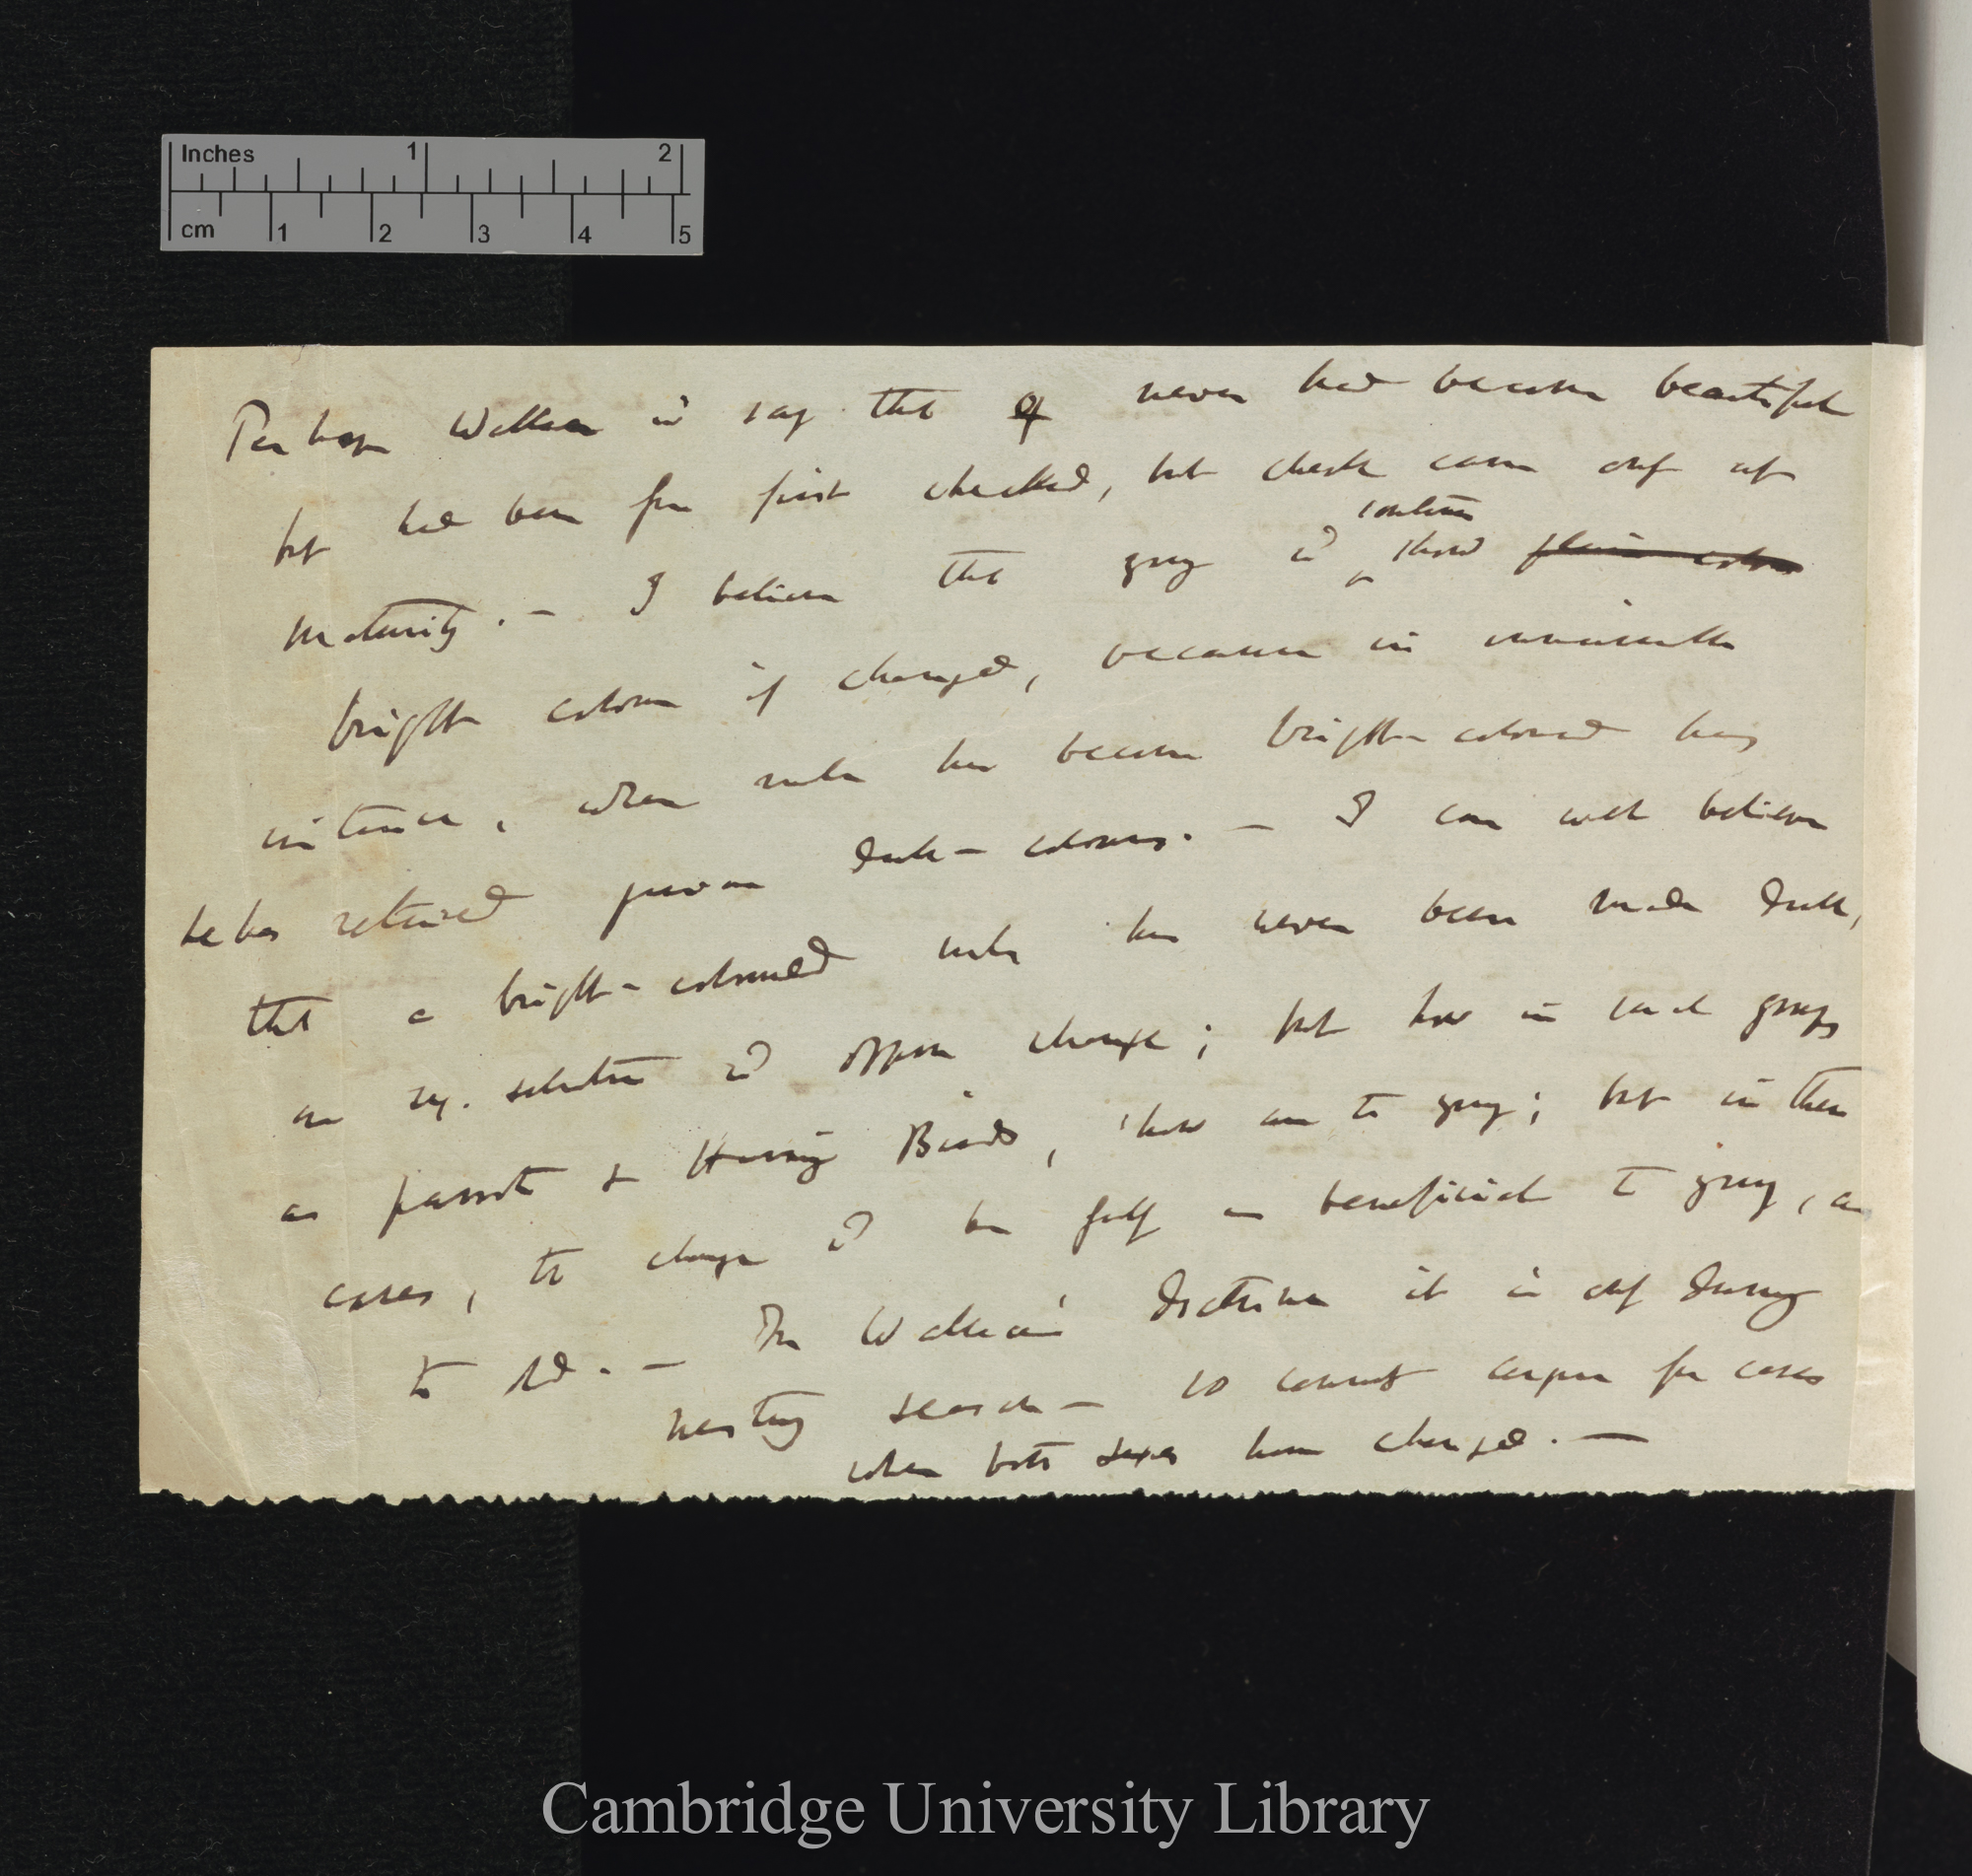 Inches 1 2
cm 1 2 3 4 5
Perhaps Wallace wd say that ♀ never had become beautiful
but had been from first checked, but check came only at
maturity. — I believe that young wd
show plain colour
bright colour if changed, because in innumerable
instances, when male has become bright-coloured
he has retained dull-colours. — I can well believe
that a bright-coloured male has never been made dull,
as sex. selection wd oppose change; but how in such groups
as parrots & Humming Birds, how are the young; but in these
cases, the change wd be fully as beneficial to young, as
to old. — On Wallace's doctrine it is only during
nesting season — so cannot for cases
when both sexes have changed. —
Cambridge University Library